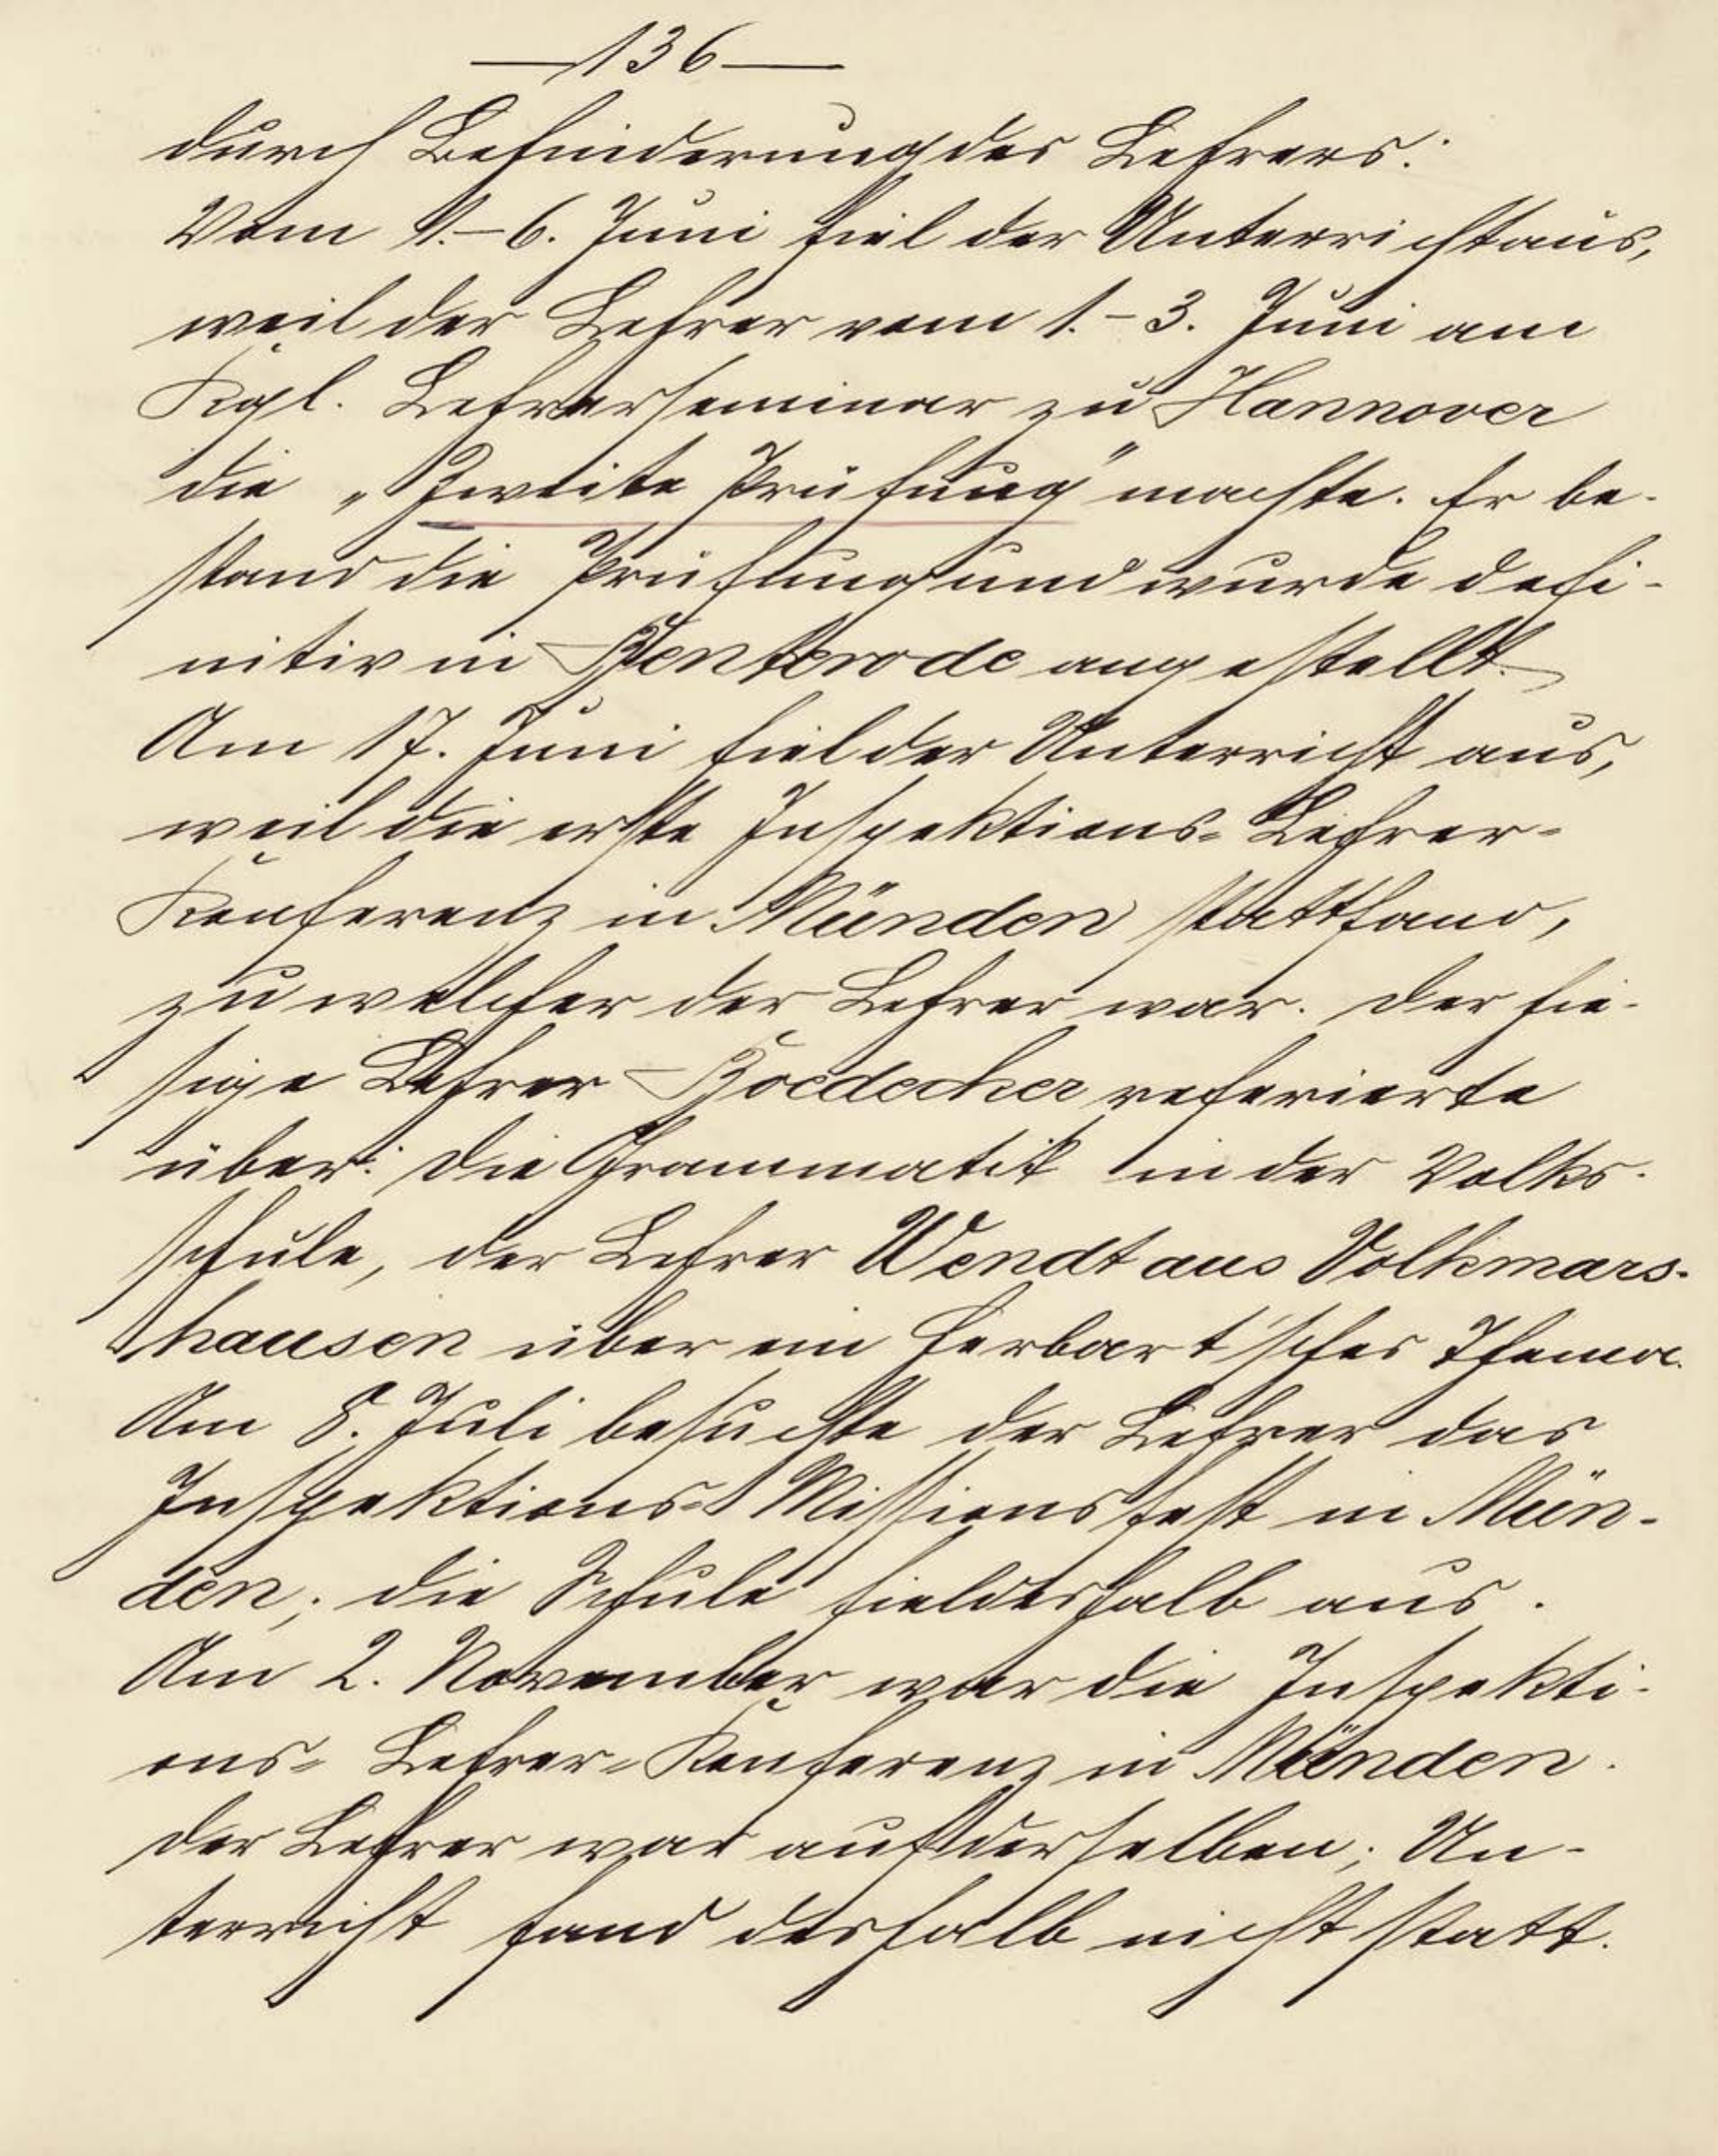 —136—
durch Behinderung des Lehrers:
Vom 1.–6. Juni fiel der Unterricht aus,
weil der Lehrer vom 1.–3. Juni am
Kgl. Lehrerseminar zu Hannover
die „Zweite Prüfung" machte. Er be-
stand die Prüfung und wurde defi-
nitiv in Benterode angestellt.
Am 17. Juni fiel der Unterricht aus,
weil die erste Inspektions-Lehrer-
Konferenz in Münden stattfand,
zu welcher der Lehrer war. Der hie-
sige Lehrer Boedecker referierte
über: Die Grammatik in der Volks-
schule, der Lehrer Wendt aus Volkmars-
hausen über ein Herbart'sches Thema.
Am 8. Juli besuchte der Lehrer das
Inspektions-Missionsfest in Mün-
den; die Schule fiel deshalb aus.
Am 2. November war die Inspekti-
ons-Lehrer-Konferenz in Münden.
Der Lehrer war auf derselben; Un-
terricht fand deshalb nicht statt.